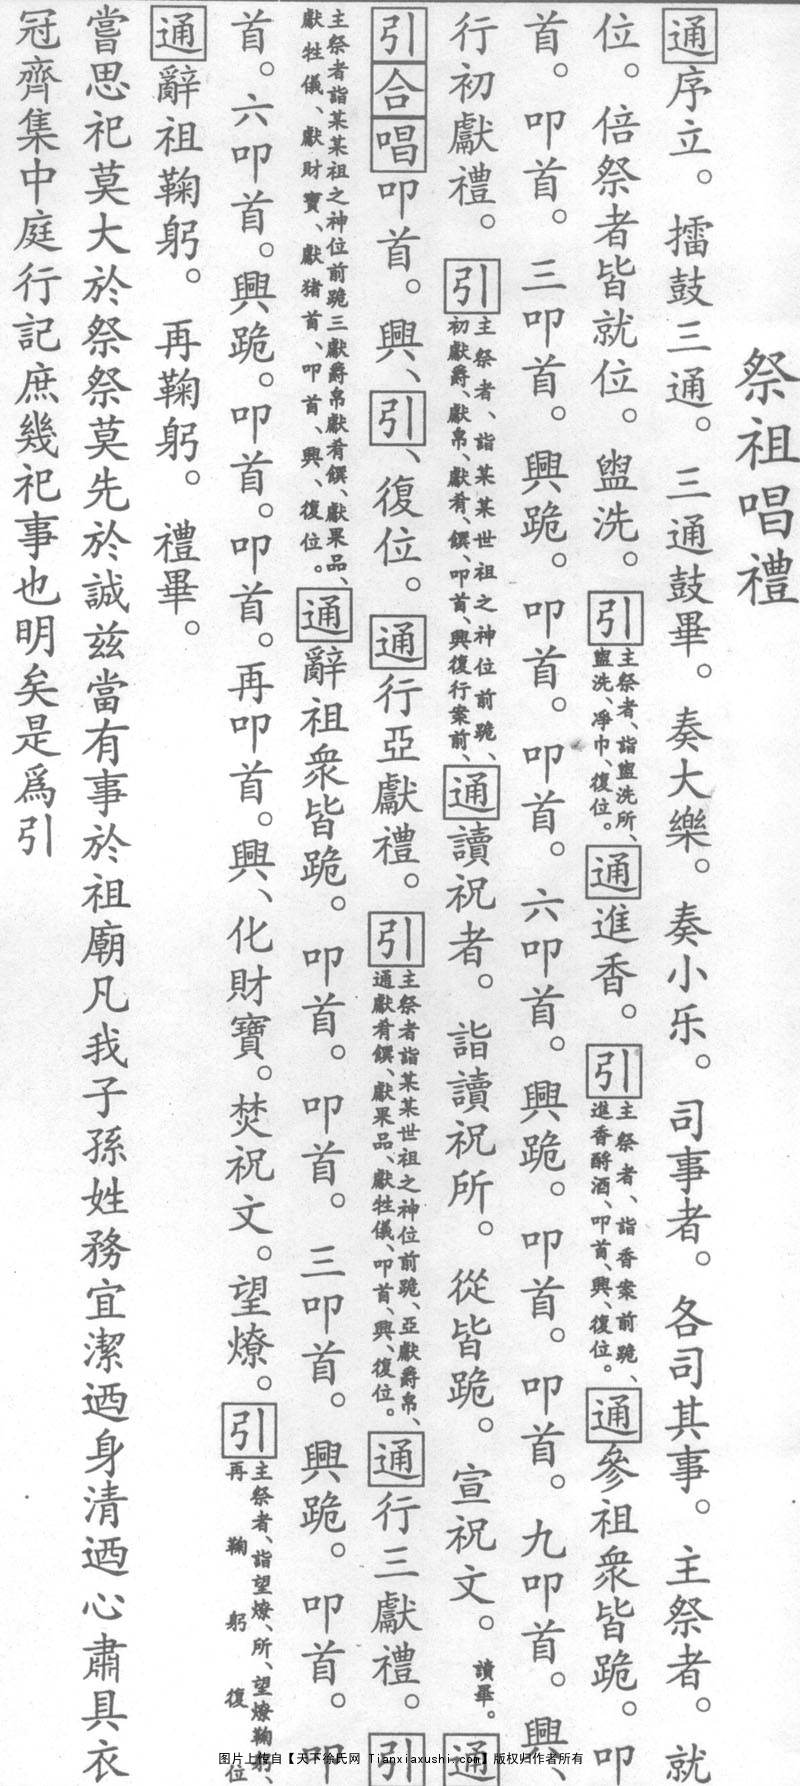 祭祖唱禮
通序立。擂鼓三通。三通鼓畢。奏大樂。奏小乐。司事者。各司其事。主祭者。就
位。倍祭者皆就位。盥洗。引主祭者、詣盥洗所、盥洗、凈巾、復位。通進香。引主祭者、詣香案前跪、進香酹酒、叩首、興、復位。通參祖衆皆跪。叩
首。叩首。三叩首。興跪。叩首。叩首。六叩首。興跪。叩首。叩首。九叩首。興、
行初獻禮。引主祭者、詣某某世祖之神位前跪、初獻爵、獻帛、獻肴、饌、叩首、興復行案前、通讀祝者。詣讀祝所。從皆跪。宣祝文。讀畢。通
引合唱叩首。興、引、復位。通行亞獻禮。引主祭者詣某某世祖之神位前跪、亞獻爵帛、通獻肴饌、獻果品、獻牲儀、叩首、興、復位。通行三獻禮。引
主祭者詣某某祖之神位前跪三獻爵帛獻肴饌、獻果品、獻牲儀、獻財寶、獻猪首、叩首、興、復位。通辭祖衆皆跪。叩首。叩首。三叩首。興跪。叩首。叩
首。六叩首。興跪。叩首。叩首。再叩首。興、化財寶。焚祝文。望燎。引主祭者、詣望燎、所、望燎鞠躬、再鞠躬復位
通辭祖鞠躬。再鞠躬。禮畢。
嘗思祀莫大於祭祭莫先於誠兹當有事於祖廟凡我子孫姓務宜潔迺身清迺心肅具衣
冠齊集中庭行記庶幾祀事也明矣是爲引
图片上传自【天下徐氏网 Tianxiaxushi.com】版权归作者所有